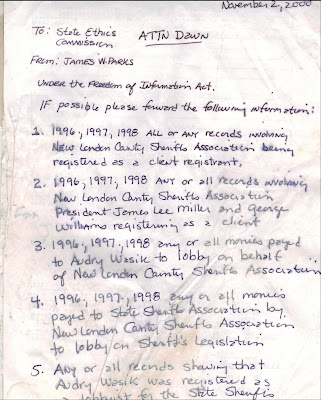 November 2, 2000
To: State Ethics ATTN Dawn
Commission
From: James W. Parks
Under the Freedom of Information Act.
If possible please forward the following information:
1. 1996, 1997, 1998 All or Any records involving
New London County Sheriffs Association being
registered as a client registrant.
2. 1996, 1997, 1998 Any or all records involving
New London County Sheriffs Association
President James Lee Miller and George
Williams registering as a client
3. 1996, 1997, 1998 any or all monies payed
to Audry Wasik to lobby on behalf
of New London County Sheriffs Association
4. 1996, 1997, 1998 any or all monies
payed to State Sheriffs Association by
New London County Sheriffs Association
to lobby on Sheriffs Legislation
5. Any or all records showing that
Audry Wasik was registered as
a lobbyist for the State Sheriffs